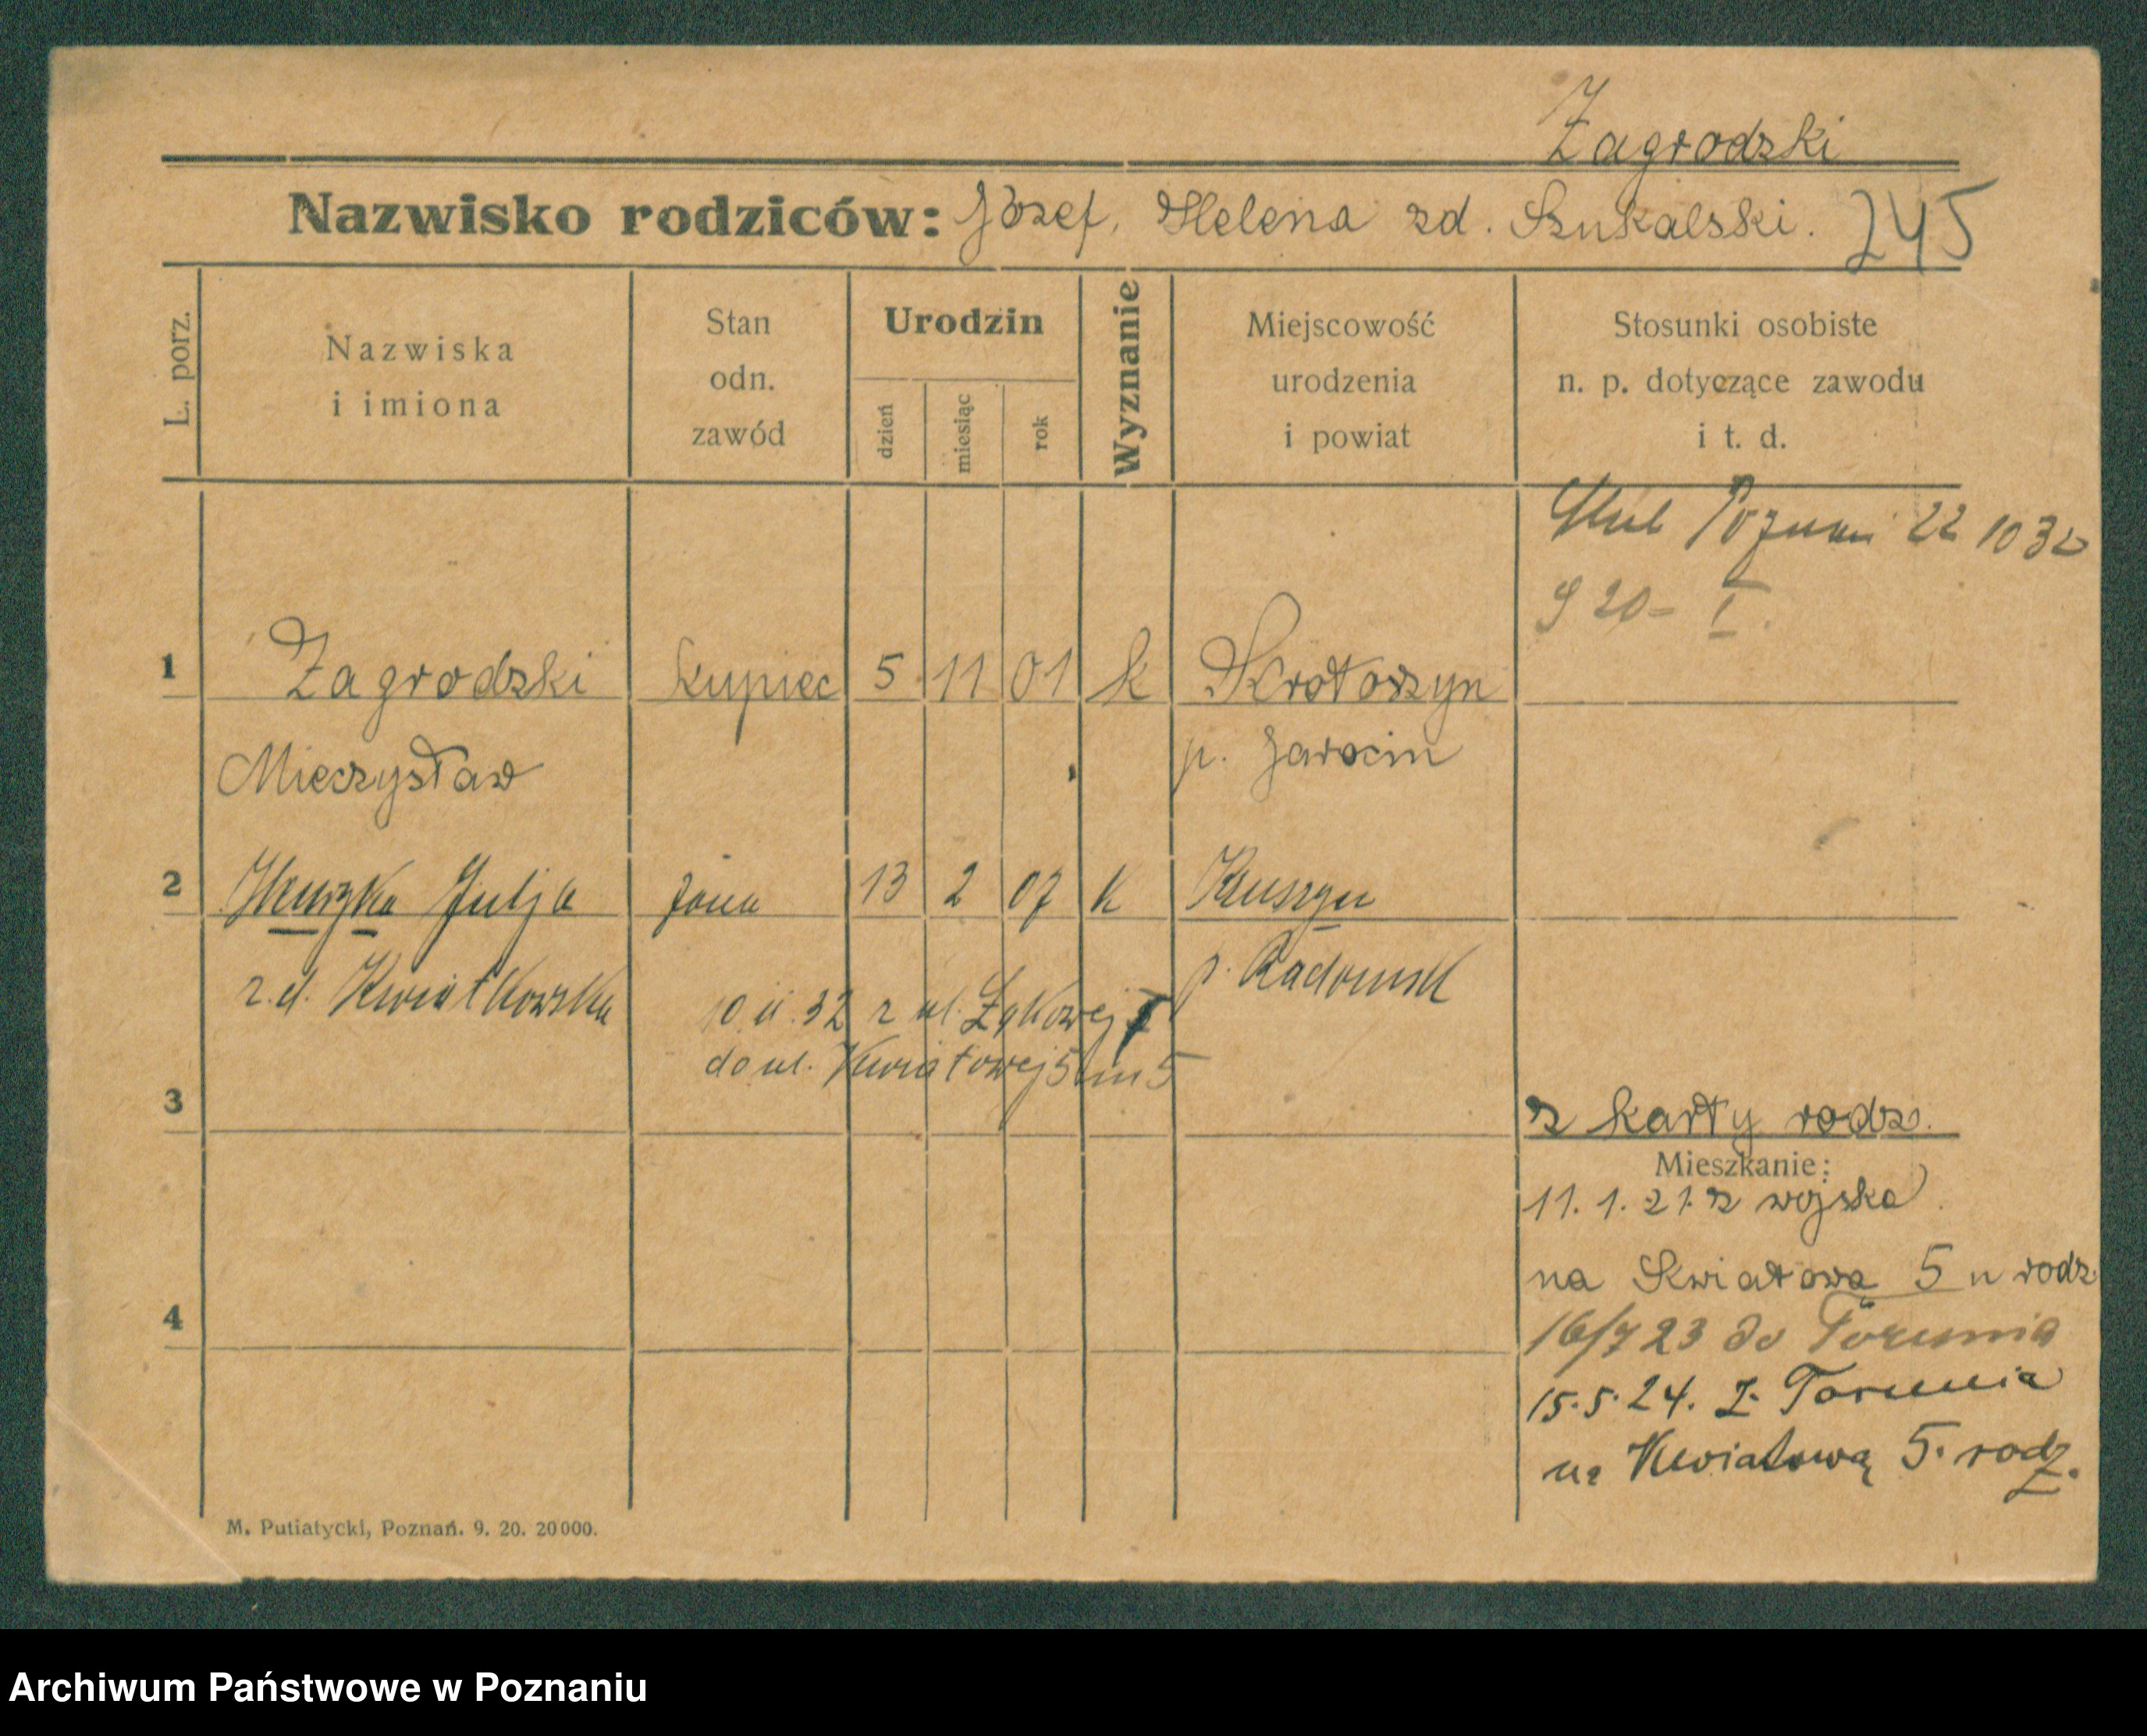 Zagrodzki
Nazwisko rodziców: Józef, Helena zd. Szukalski. 245
L. porz.
Nazwiska
i imiona
Stan
odn.
zawód
Urodzin
dzień
miesiąc
rok
Wyznanie
Miejscowość
urodzenia
i powiat
Stosunki osobiste
n. p. dotyczące zawodu
i t. d.
Poznań 22 10 32
920- I.
1 Zagrodzki kupiec 5 11 01 k Krotoszyn
Mieczysław p. Jarocin
2 Julja żona 13 2 07 k
z.d. Kwiatkowska p. Radomsk
10 11.32 z ul. Łąkowej
do ul. Kwiatowej 5 m 5
3
z karty rodz.
Mieszkanie:
11. 1. 21. z wojska
na Kwiatową 5 u rodz.
4
16/7 23 do Torunia
15.5.24. Z Torunia
na Kwiatową 5. rodz.
M. Putiatycki, Poznań. 9. 20. 20000.
Archiwum Państwowe w Poznaniu